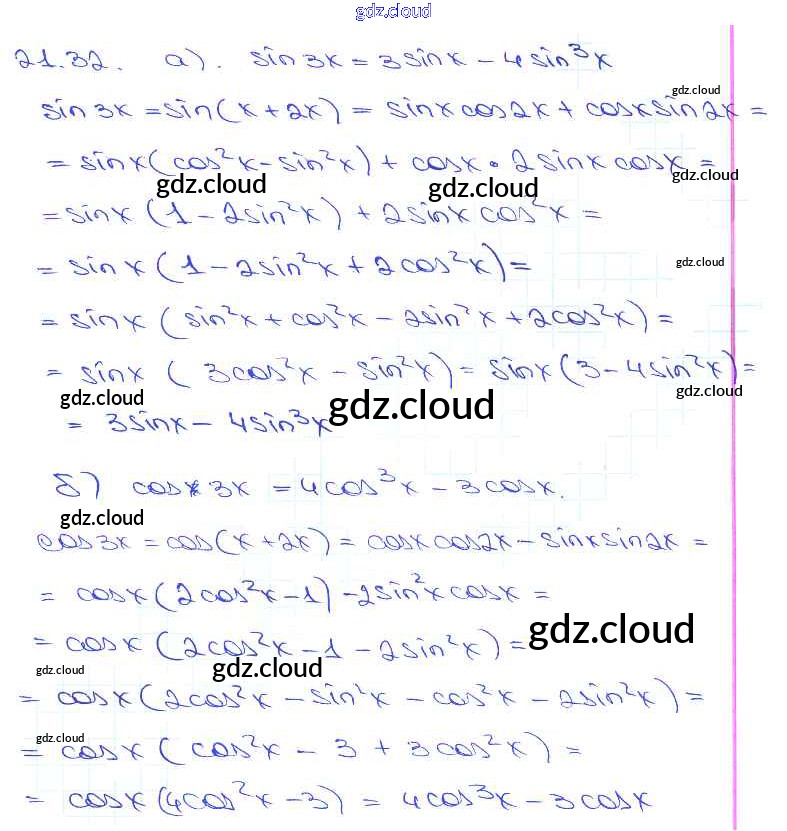 gdz.cloud
21.32. а). sin3x = 3sinx - 4sin³x
gdz.cloud
sin3x = sin(x+2x) = sinxcos2x + cosxsin2x =
= sinx(cos²x - sin²x) + cosx • 2sinxcosx =
gdz.cloud gdz.cloud gdz.cloud
= sinx (1 - 2sin²x) + 2sinxcos²x =
= sinx (1 - 2sin²x + 2cos²x) =
gdz.cloud
= sinx (sin²x + cos²x - 2sin²x + 2cos²x) =
= sinx ( 3cos²x - sin²x) = sinx(3 - 4sin²x) =
gdz.cloud gdz.cloud gdz.cloud
= 3sinx - 4sin³x
б) cosx3x = 4cos³x - 3cosx.
gdz.cloud
cos3x = cos(x+2x) = cosxcos2x - sinxsin2x =
= cosx(2cos²x - 1) - 2sin²xcosx =
= cosx (2cos²x - 1 - 2sin²x) =
gdz.cloud
gdz.cloud gdz.cloud
= cosx(2cos²x - sin²x - cos²x - 2sin²x) =
gdz.cloud
= cosx ( cos²x - 3 + 3cos²x ) =
= cosx (4cos²x - 3) = 4cos³x - 3cosx